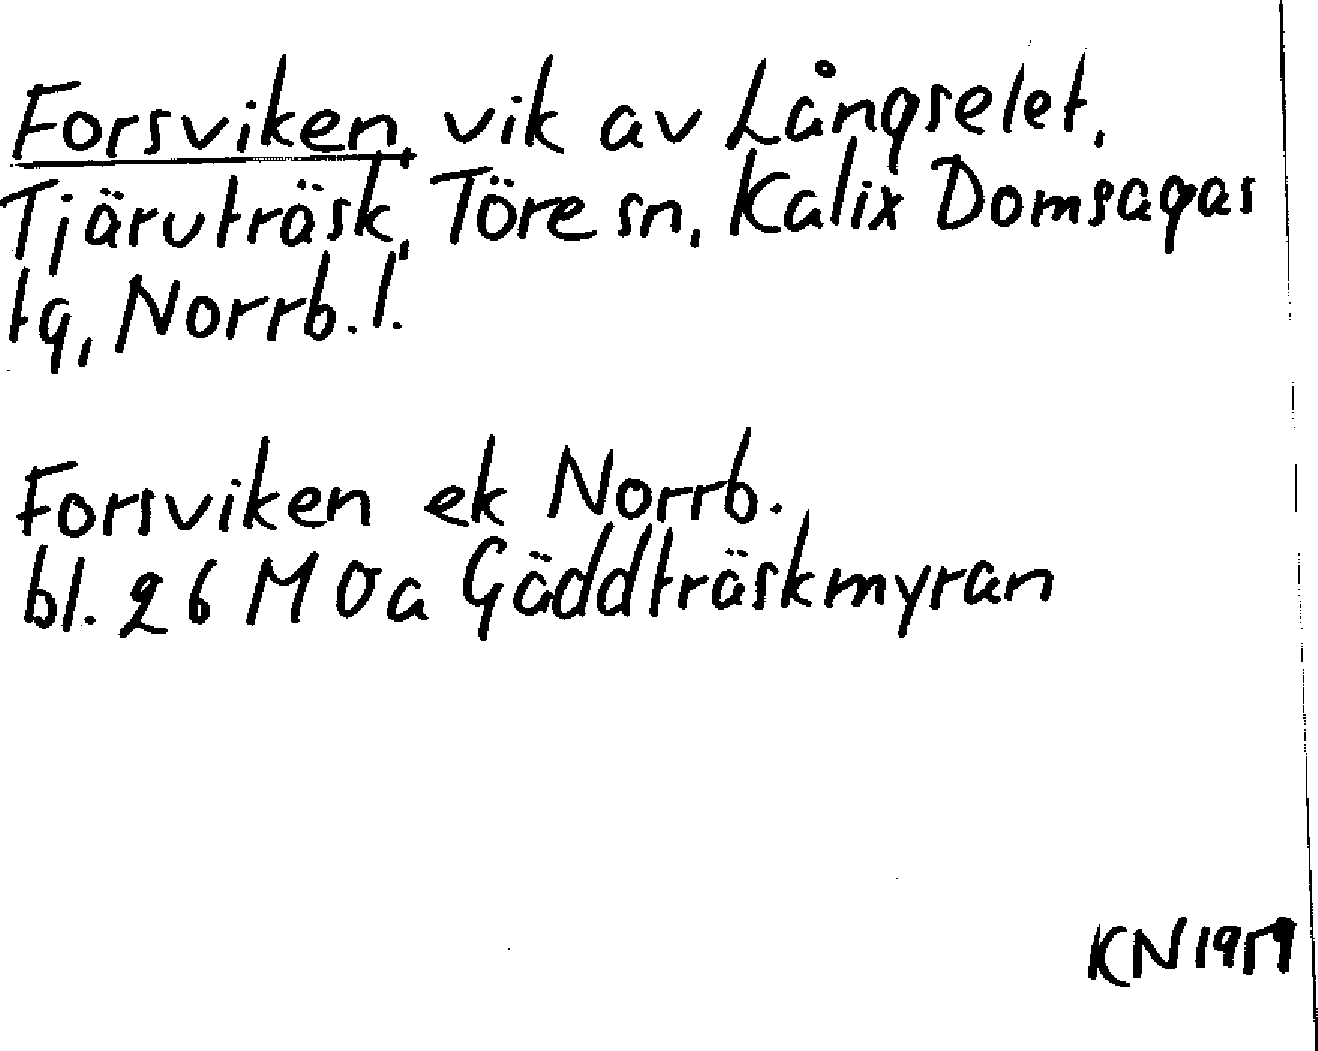 Forsviken, vik av Långselet,
Tjäruträsk, Töre sn, Kalix Domsagas
tg, Norrb. l.
Forsviken ek Norrb.
bl. 26 M 0a Gäddträskmyran
KN 1959